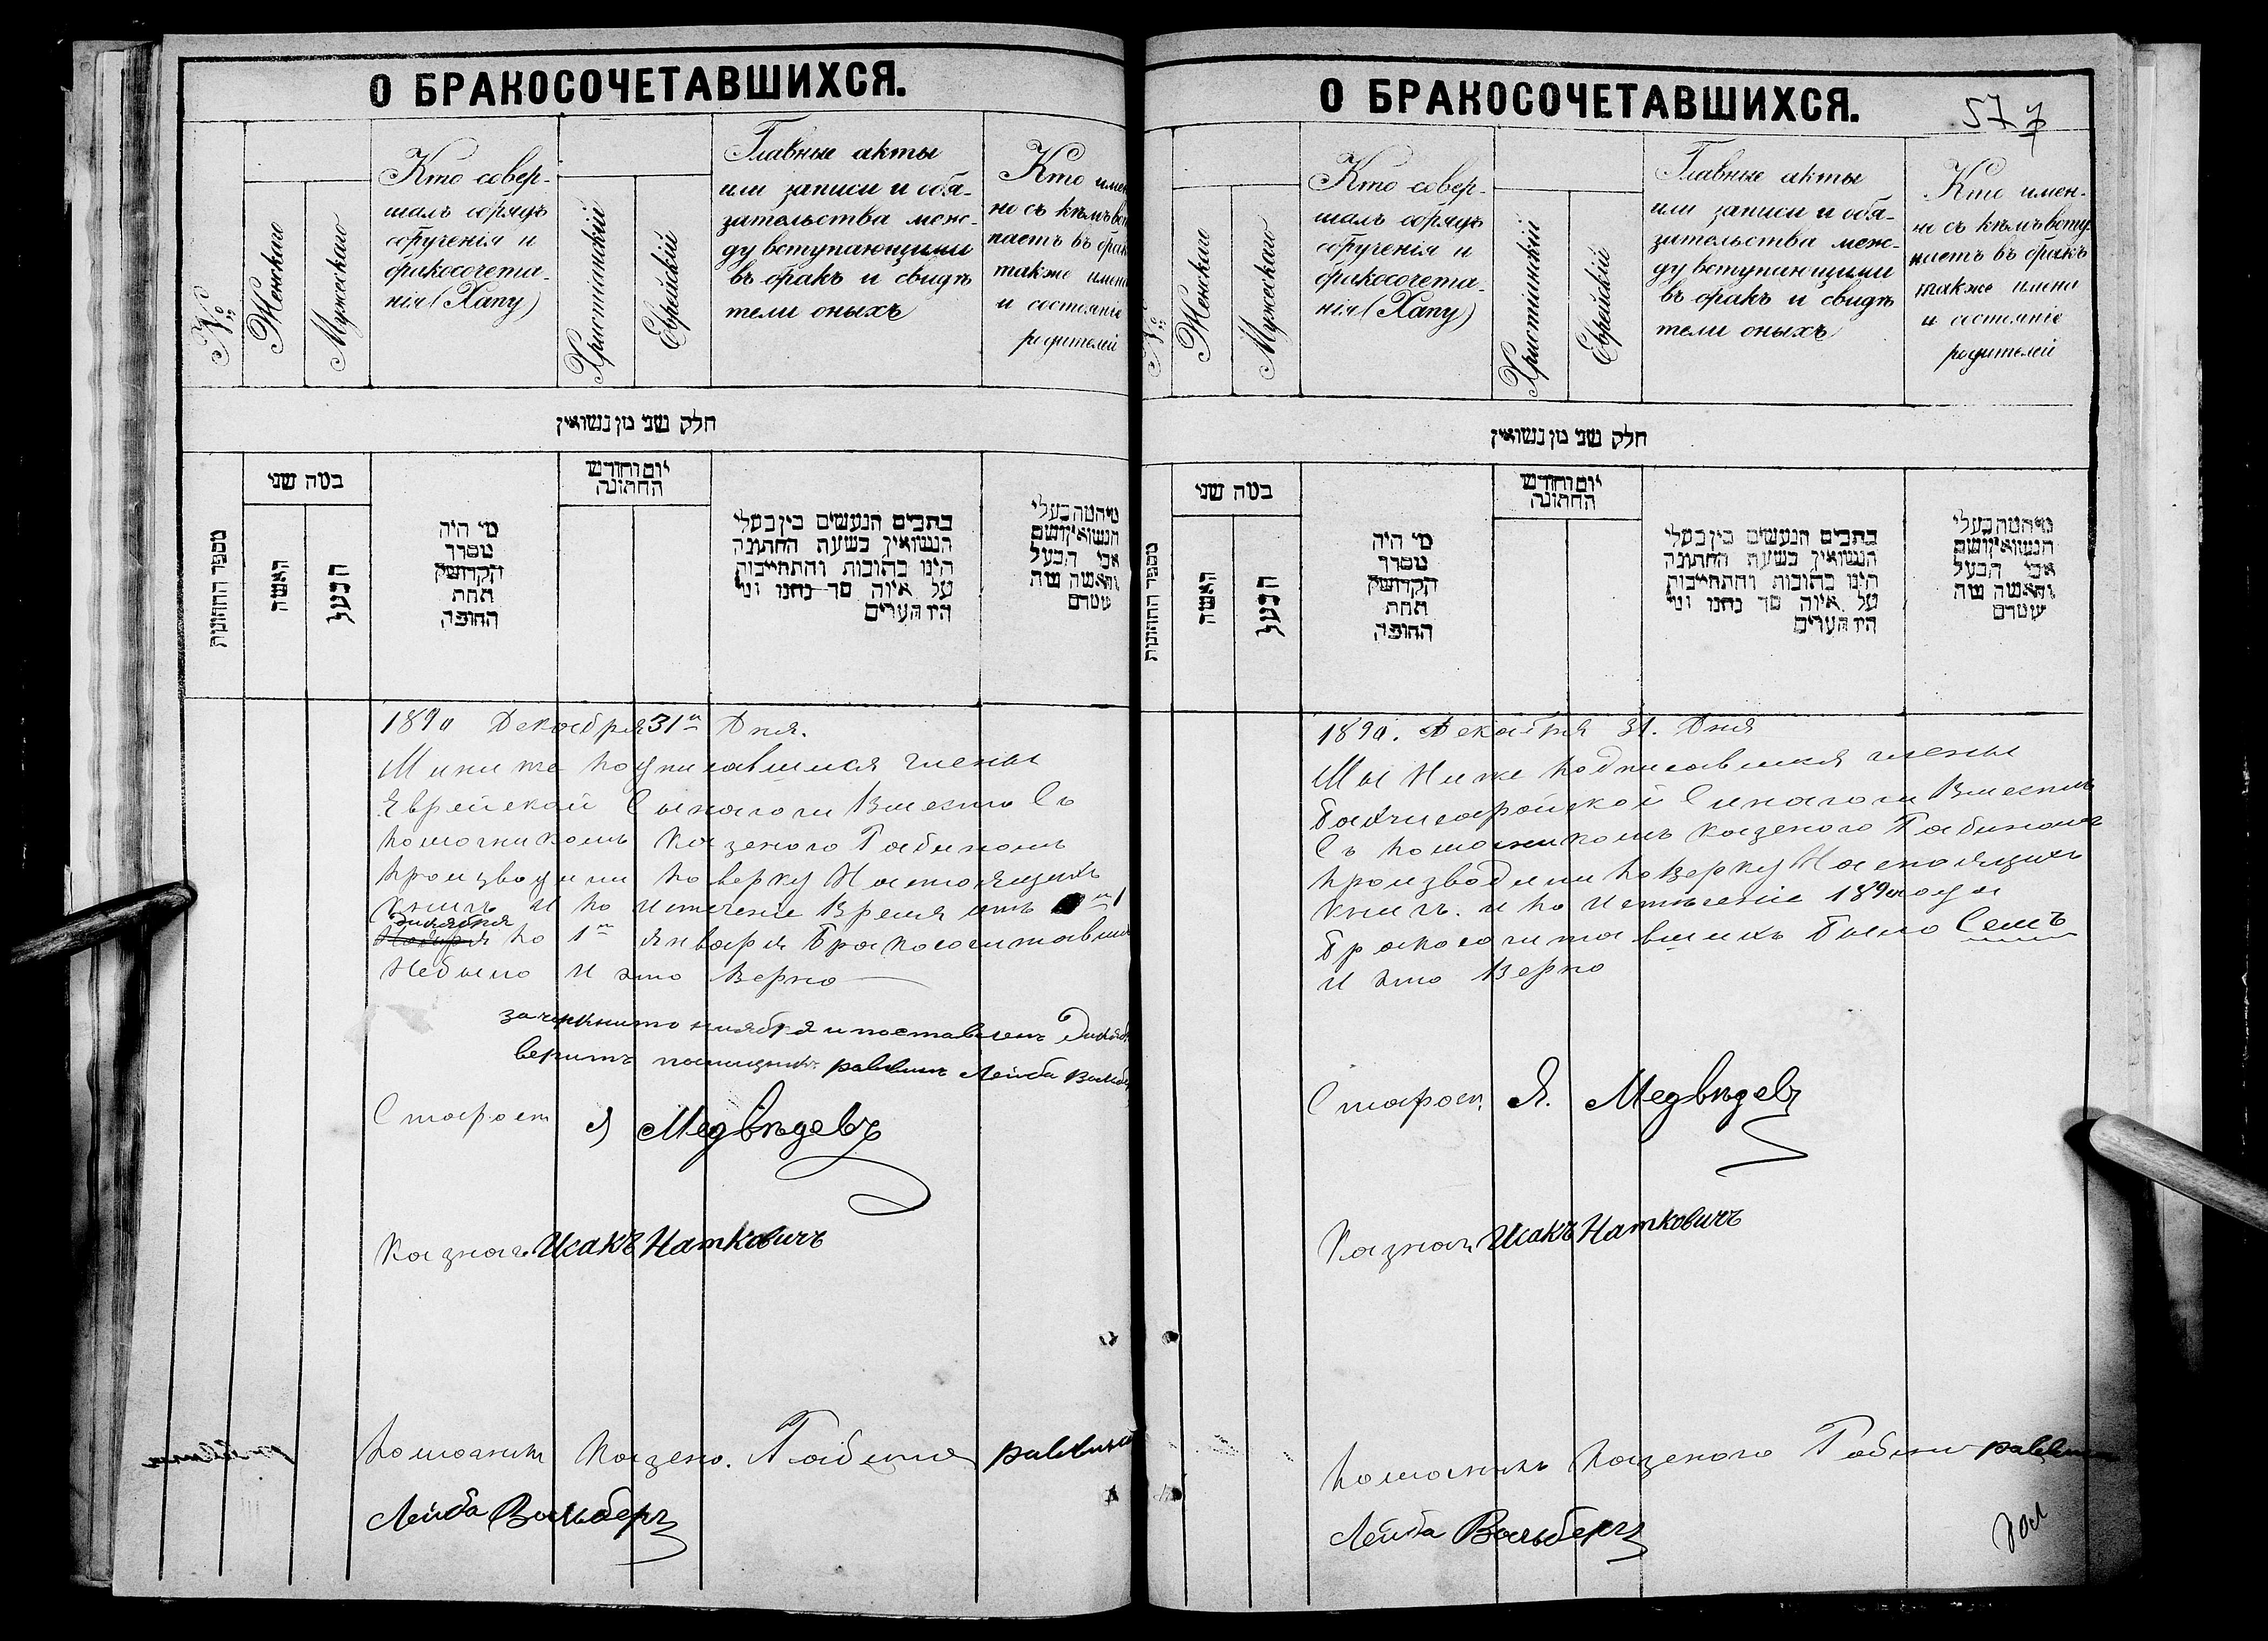 О БРАКОСОЧЕТАВШИХСЯ.
№
Женскаго
Мужескаго
Кто совер-
шалъ обрядъ
обрученія и
бракосочета-
нія (Хапу)
Христіанскій
Еврейскій
Главные акты
или записи и обя-
зательства меж-
ду вступающими
въ бракъ и свидѣ
тели оныхъ
Кто имен
но съ кѣмъ вст
паетъ въ брак
также имена
и состояніе
родителей
חלק שני מן נשואין
מספר החתונות
במה שני
האשה
הבעל
מי היה
מסדר
הקדושין
תחת
החופה
יום וחודש
החתונה
כתבים הנעשים בין בעלי
הנשואין בשעת החתונה
הינו כתובות והתחייבות
על איזה סך נתנו ומי
היו העדים
מי המה בעלי
הנשואין ושם
אבי הבעל
והאשה
1890 Декабря 31го Дня.
Мы ниже подписавшися члены
Еврейской Сыногоги Вместо Съ
помочникомъ Казеного Рабиномъ
производили поверку Настоящихъ
книгъ и по истечение Время отъ 1
Дикабря
Ноября по 1е января Бракосочитавши
Небыло и это Верно
зачеркнито ниября и поставленъ Дикаб
веритъ помищникъ раввинъ Лейба Вольбер
Старост Я Медвѣдевъ
Казнач. Исакъ Наткевичъ
помочникъ Казено. Рабина раввина
Лейба Вольберг
О БРАКОСОЧЕТАВШИХСЯ.
577
№
Женскаго
Мужескаго
Кто совер-
шалъ обрядъ
обрученія и
бракосочета-
нія (Хапу)
Христіанскій
Еврейскій
Главные акты
или записи и обя-
зательства меж-
ду вступающими
въ бракъ и свидѣ
тели оныхъ
Кто имен-
но съ кѣмъ всту
паетъ въ бракъ
также имена
и состояніе
родителей
חלק שני מן נשואין
מספר החתונות
במה שני
האשה
הבעל
מי היה
מסדר
הקדושין
תחת
החופה
יום וחודש
החתונה
כתבים הנעשים בין בעלי
הנשואין בשעת החתונה
הינו כתובות והתחייבות
על איזה סך נתנו ומי
היו העדים
מי המה בעלי
הנשואין ושם
אבי הבעל
והאשה
1890. Декабря 31. Дня
Мы Ниже подписавшися члены
Бахчисаройской Синогоги Вместъ
Съ помочникомъ казеного Рабиномъ
производили поверку Настоящихъ
книгъ. и по истечение 1890 года
Бракосочитавшихъ Было Семъ
и это Верно
Старост. Я. Медвѣдевъ
Казнач Исакъ Наткевичъ
помочникъ Казеного Рабин раввина
Лейба Вольбергъ